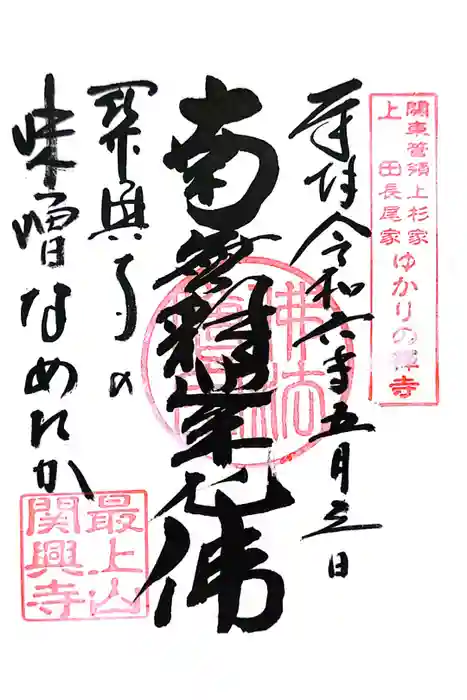 関東管領上杉家
上田長尾家
ゆかりの禅寺
奉拝 令和六年五月三日
南無釈迦牟尼佛
関興寺の
味噌なめたか
最上山
関興寺